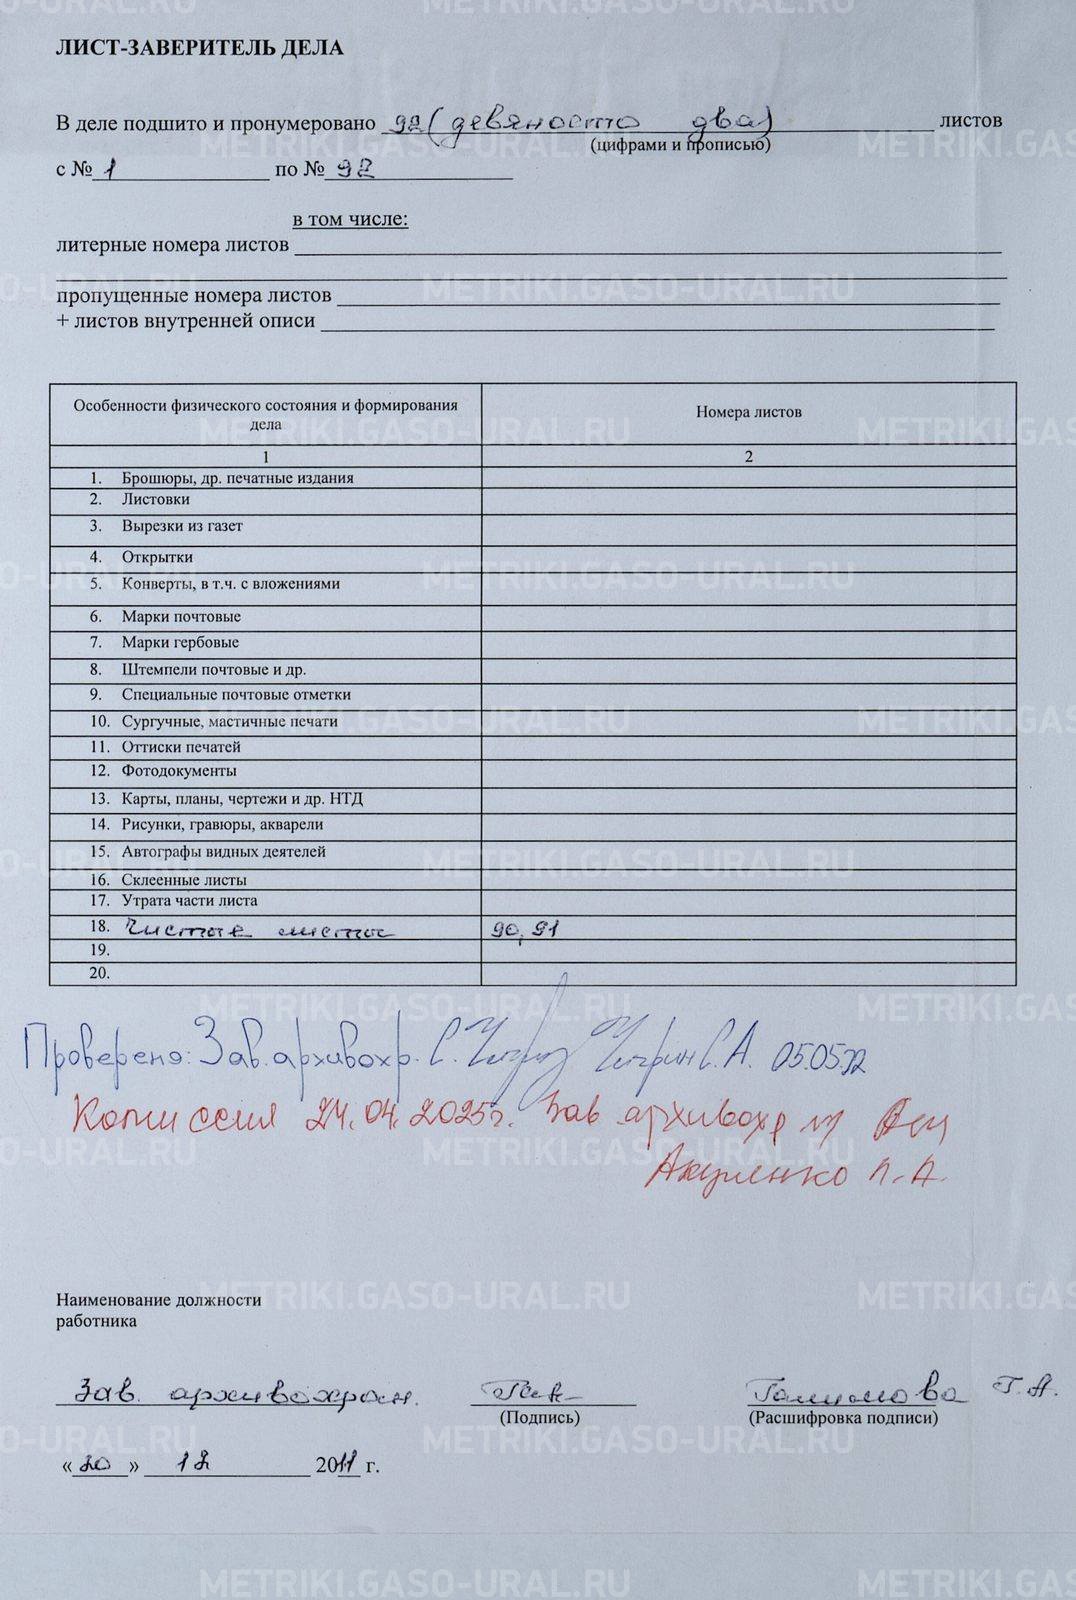 ЛИСТ-ЗАВЕРИТЕЛЬ ДЕЛА
В деле подшито и пронумеровано 92 (девяносто два) листов
(цифрами и прописью)
с № 1 по № 92
в том числе:
литерные номера листов
пропущенные номера листов
+ листов внутренней описи
Особенности физического состояния и формирования дела
Номера листов
1 2
1. Брошюры, др. печатные издания
2. Листовки
3. Вырезки из газет
4. Открытки
5. Конверты, в т.ч. с вложениями
6. Марки почтовые
7. Марки гербовые
8. Штемпели почтовые и др.
9. Специальные почтовые отметки
10. Сургучные, мастичные печати
11. Оттиски печатей
12. Фотодокументы
13. Карты, планы, чертежи и др. НТД
14. Рисунки, гравюры, акварели
15. Автографы видных деятелей
16. Склеенные листы
17. Утрата части листа
18. Чистые листы 90, 91
19.
20.
Проверено: Зав. архивохр. С. А. 05.05.22
Комиссия 24.04.2025г. Зав архивохр
Акуленко Л.А.
Наименование должности
работника
Зав. архивохран. Т. А.
(Подпись) (Расшифровка подписи)
«20» 12 2011 г.
METRIKI.GASO-URAL.RU